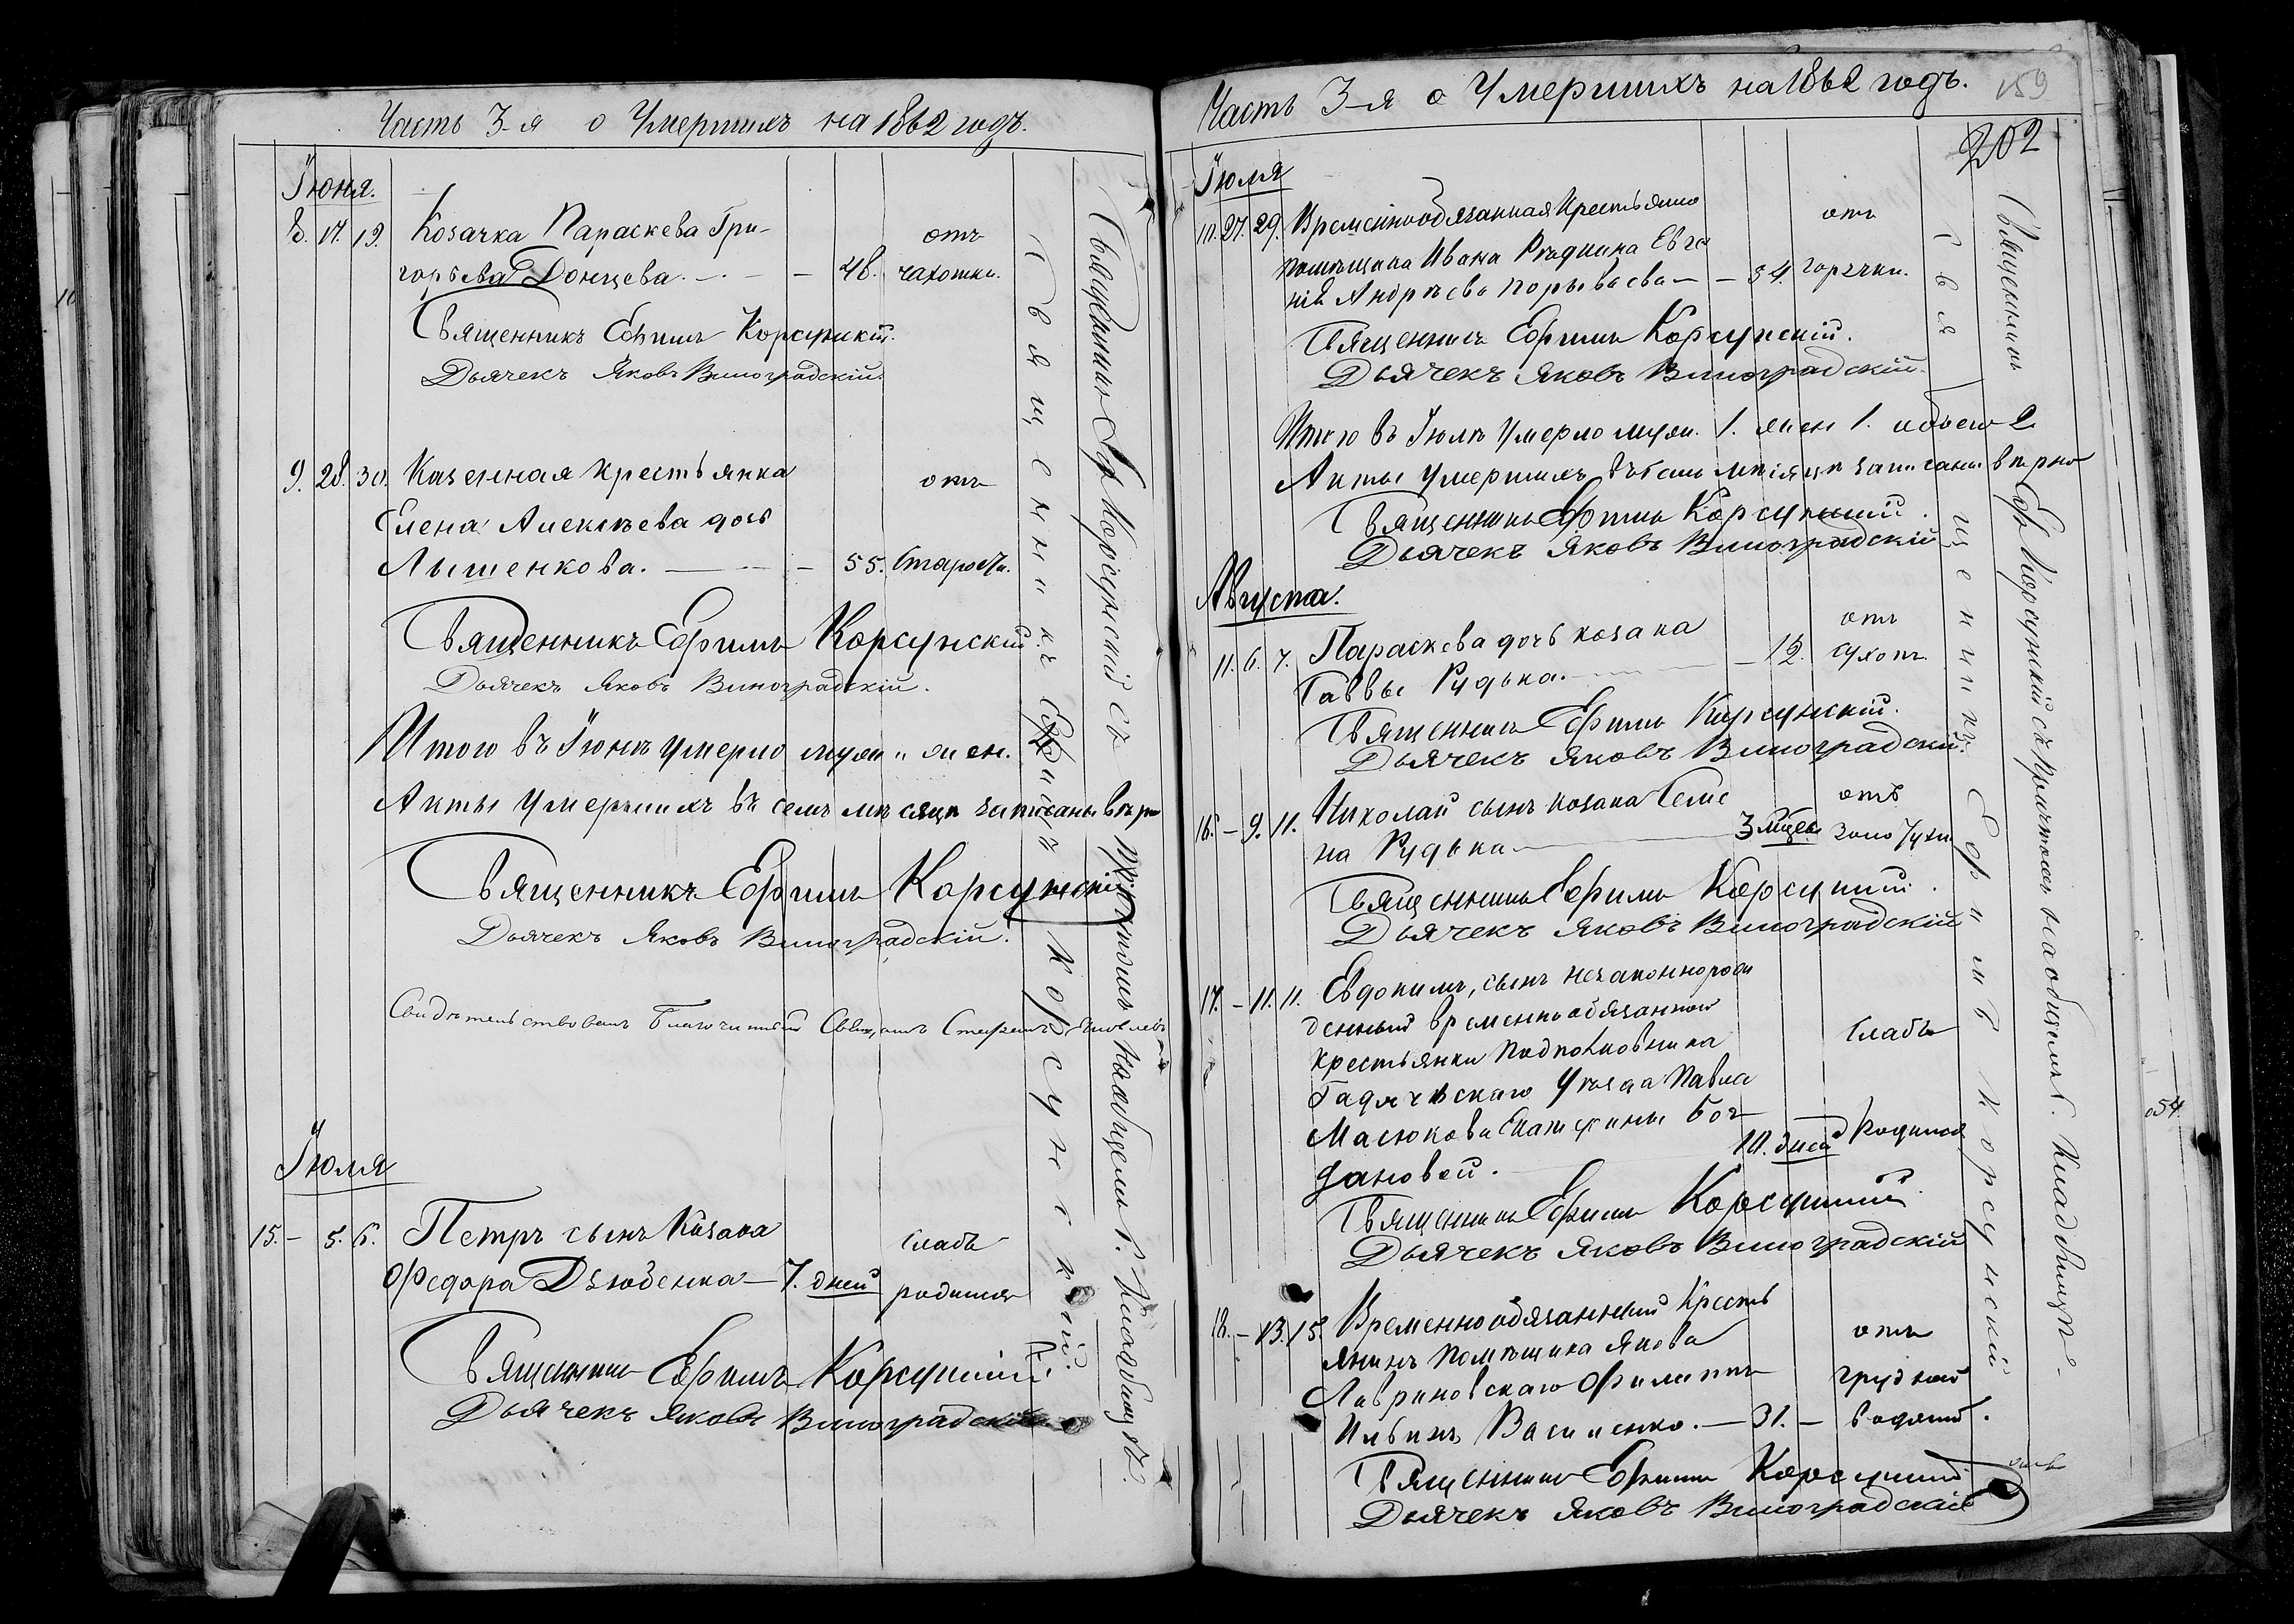 Часть 3-я о Умершихъ на 1862 годъ.
Іюня.
8. 17. 19. Козачка Параскева Гри-
горьева Донцева. — 48. отъ чахотки.
Священникъ Ефимъ Корсунскій.
Дьячекъ Яковъ Виноградскій.
9. 28. 30. Казенная крестьянка
Елена Алексѣева дочь
Лышенкова. — 55. отъ Старости.
Священникъ Ефимъ Корсунскій.
Дьячекъ Яковъ Виноградскій.
Итого въ Іюнѣ умерло муж. " жен.
Акты Умершихъ въ семъ мѣсяцѣ записаны вѣрно
Священникъ Ефимъ Корсунскій
Дьячекъ Яковъ Виноградскій.
Свидѣтельствовалъ Благочинный Священ. Стефанъ
Іюля
15. — 5. 6. Петръ сынъ Козака
Федора Дзюбенка — 7. дней слабъ родился
Священникъ Ефимъ Корсунскій
Дьячекъ Яковъ Виноградскій
Священникъ Ефимъ Корсунскій.
Священникъ Еф. Корсунскій съ причтомъ на общемъ кладбищѣ.
Часть 3-я о Умершихъ на 1862 годъ.
159
202
Іюля
10. 27. 29. Временнообязанная Крестьянка
помѣщика Ивана Рѣдкина Евге
нія Андрѣева Порываева — 54. отъ горячки.
Священникъ Ефимъ Корсунскій.
Дьячекъ Яковъ Виноградскій.
Итого въ Іюлѣ Умерло муж. 1. жен 1. обоего 2
Акты Умершихъ въ семъ мѣсяцѣ записаны вѣрно
Священникъ Ефимъ Корсунскій.
Дьячекъ Яковъ Виноградскій
Августа.
11. 6. 7. Параскева дочь козака
Саввы Рудька. — 12. отъ сухот.
Священникъ Ефимъ Корсунскій.
Дьячекъ Яковъ Виноградскій.
16. — 9. 11. Николай сынъ козака Семе
на Рудька — 3 мѣсе. отъ золотухи
Священникъ Ефимъ Корсунскій.
Дьячекъ Яковъ Виноградскій
17. — 11. 11. Евдокимъ, сынъ незаконнорож
денный временнообязанной
крестьянки Подполковника
Гадячьскаго Уѣзда Павла
Масюкова Екатерины Бог
дановой. 10. дней слабъ родился
Священникъ Ефимъ Корсунскій.
Дьячекъ Яковъ Виноградскій
18. — 13. 15. Временнообязанный Кресть
янинъ помѣщика Якова
Лавриновскаго Филиппъ
Ильинъ Василенко. — 31. — отъ грудной водяной.
Священникъ Ефимъ Корсунскій
Дьячекъ Яковъ Виноградскій
Священникъ. Ефимъ Корсунскій
Священникъ Еф. Корсунскій съ причтомъ на общемъ кладбищѣ.